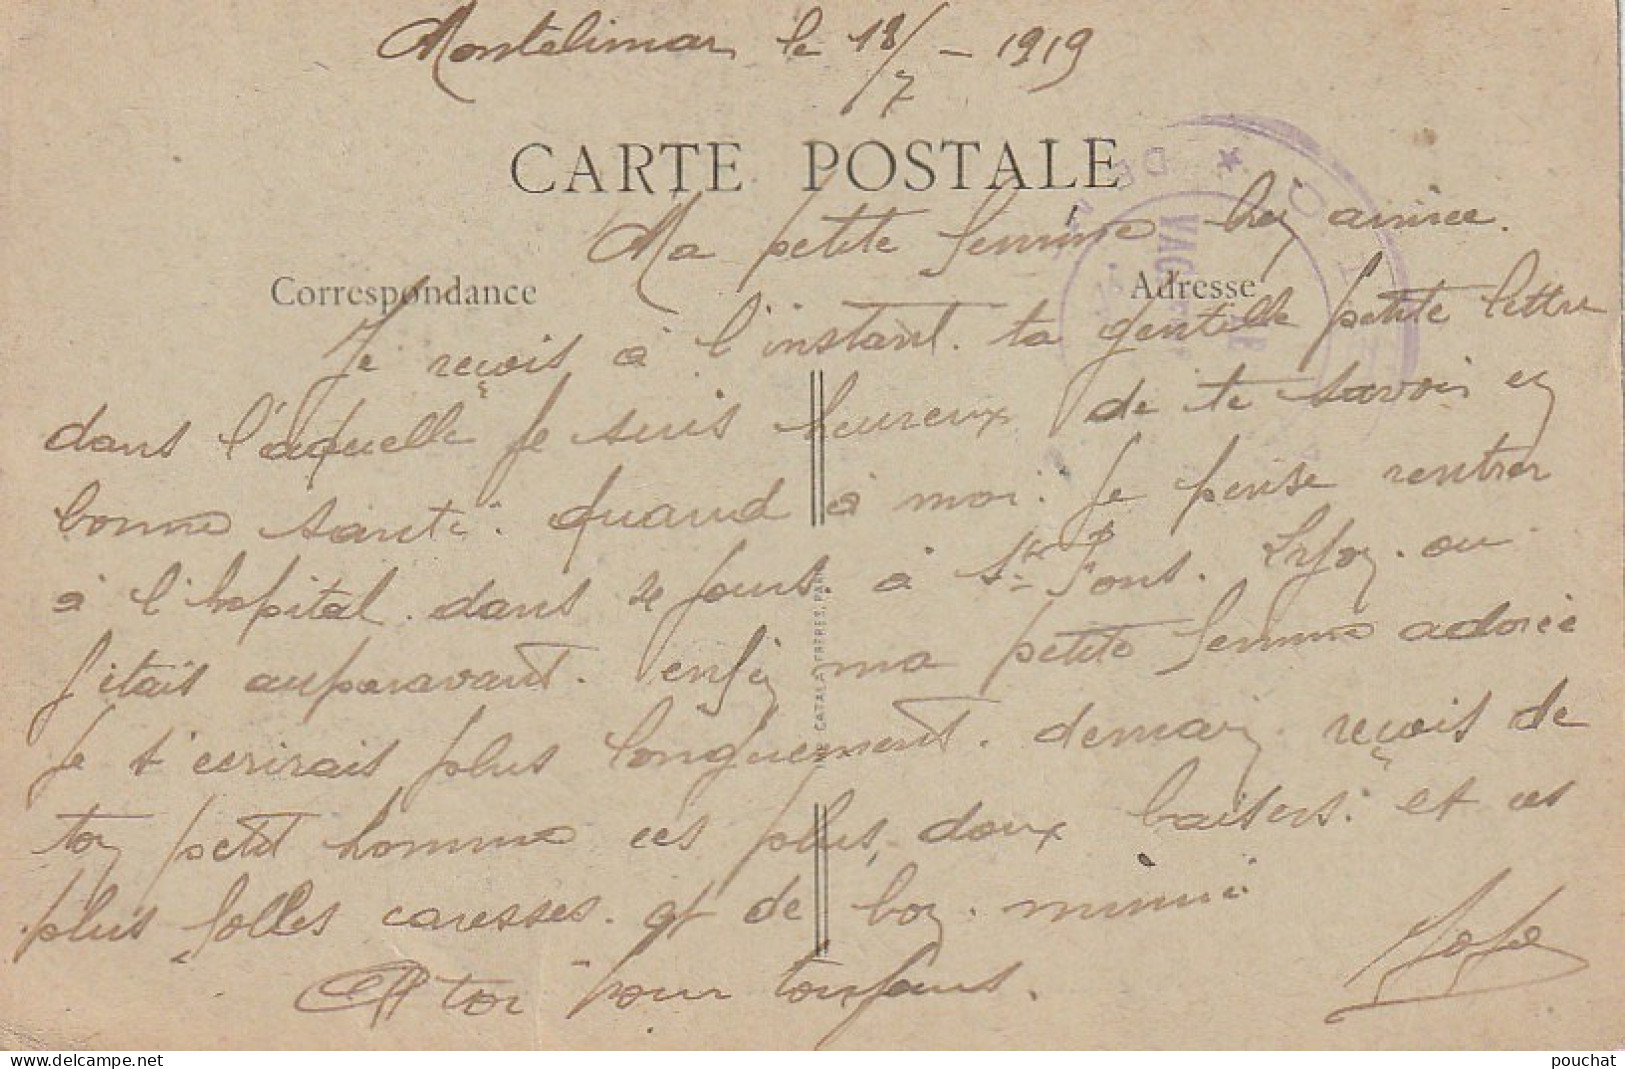 Montelimar le 18/7 - 1919
CARTE POSTALE
Ma petite femme bien aimee.
Correspondance
Adresse
Je reçois à l'instant. ta gentille petite lettre
dans l'aquelle je suis heureux de te savoir en
bonne santé. quand à moi. Je pense rentrer
à l'hopital. dans se jours, à St Fons. Lyon. ou
j'étais auparavant. enfin ma petite femme adorée
Je t'ecrirais plus longuement. demain. reçois de
ton petit homme ces plus doux baisers. et ces
plus folles caresses. et de bon. mimi
A toi pour toujours.
Jojo
CATALA FRERES, PARIS
DE
pouchat